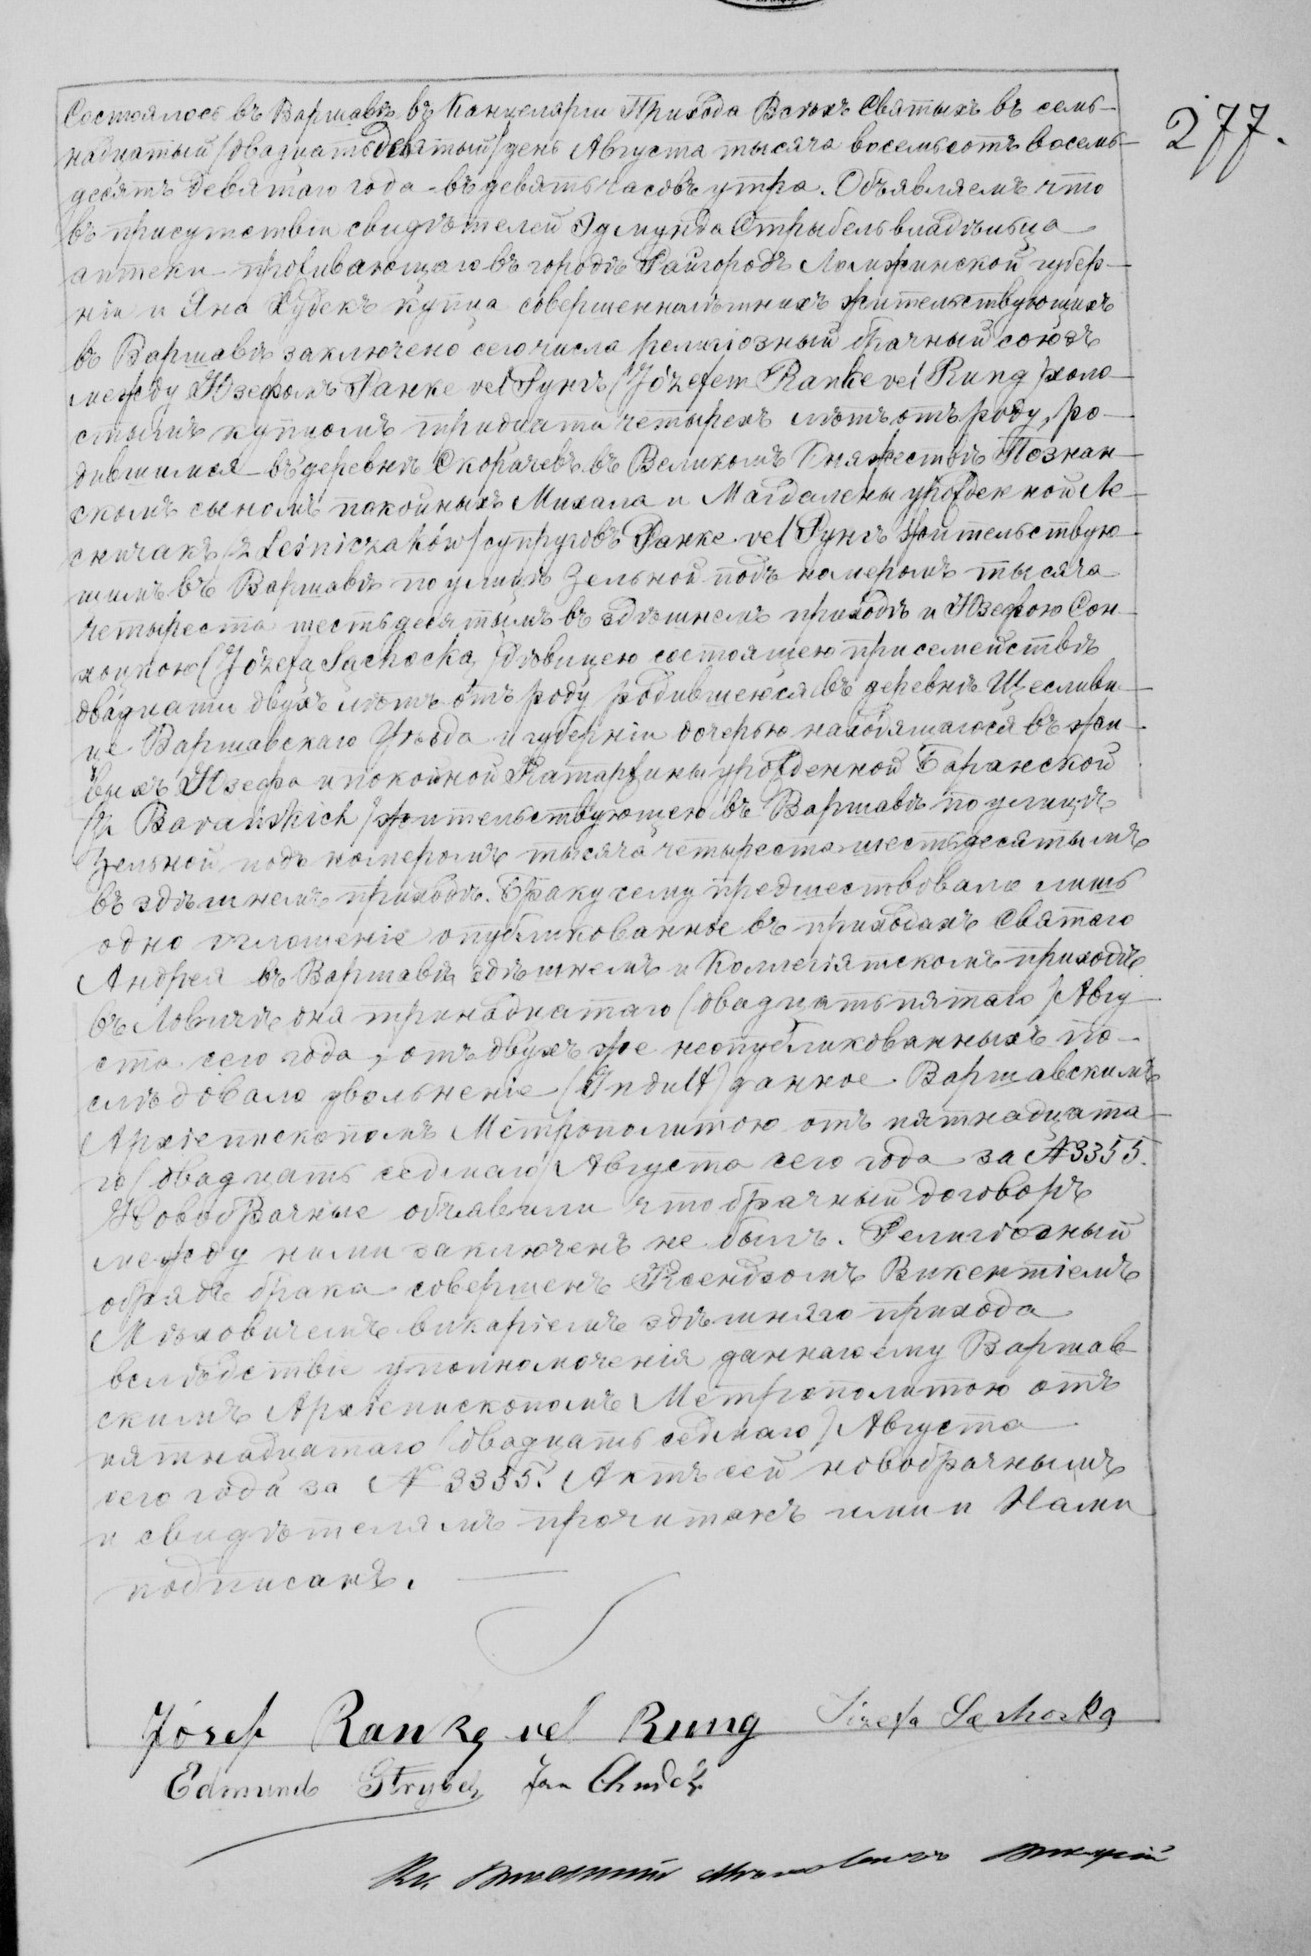 277.
Состоялось въ Варшавѣ въ Канцеляріи Прихода Всѣхъ Святыхъ въ семь-
надцатый /двадцать девятый/ день Августа тысяча восемьсотъ восемь-
десятъ девятаго года въ девять часовъ утра. Объявляемъ что
въ присутствіи свидѣтелей Эдмунда Стрыбель владѣльца
аптеки проживающаго въ городѣ Райгородѣ Ломжинской губер-
ніи и Яна Худекъ купца совершеннолѣтнихъ жительствующихъ
въ Варшавѣ заключено сего числа религіозный брачный союзъ
между Юзефомъ Ранке vel Рунгъ /Józefem Ranke vel Rung/ холо-
стымъ купцомъ тридцати четырехъ лѣтъ отъ роду, ро-
дившимся въ деревнѣ Скорачевѣ въ Великомъ Княжествѣ Познан-
скомъ сыномъ покойныхъ Михала и Магдалены урожденной Ле-
сничакъ /z Leśniczaków/ супруговъ Ранке vel Рунгъ жительствую-
щимъ въ Варшавѣ по улицѣ Зельной подъ номеромъ тысяча
четыреста шестьдесятымъ въ здѣшнемъ приходѣ и Юзефою Сон-
хоцкою (Józefą Sąchocką) дѣвицею состоящею при семействѣ
двадцати двухъ лѣтъ отъ роду родившеюся въ деревнѣ Щесливи-
це Варшавскаго Уѣзда и губерніи дочерью находящагося въ жи-
выхъ Юзефа и покойной Катаржины урожденной Баранской
/z Barańskich/ жительствующею въ Варшавѣ по улицѣ
Зельной подъ номеромъ тысяча четыреста шестьдесятымъ
въ здѣшнемъ приходѣ. Браку сему предшествовало лишь
одно оглашеніе опубликованное въ приходахъ Святаго
Андрея въ Варшавѣ здѣшнемъ и Коллегіятскомъ приходѣ
въ Ловичѣ дня тринадцатаго (двадцать пятаго) Авгу-
ста сего года, отъ двухъ же неопубликованныхъ по-
слѣдовало увольненіе (Indult) данное Варшавскимъ
Архіепископомъ Митрополитою отъ пятнадцата-
го /двадцать седмаго/ Августа сего года за № 3355.
Новобрачные объявили что брачный договоръ
между ними заключенъ не былъ. Религіозный
обрядъ брака совершенъ Ксендзомъ Викентіемъ
Мѣховичемъ викаріемъ здѣшняго прихода
вслѣдствіе уполномоченія даннаго ему Варшав-
скимъ Архіепископомъ Митрополитою отъ
пятнадцатаго /двадцать седмаго/ Августа
сего года за № 3355. Актъ сей новобрачнымъ
и свидѣтелямъ прочитанъ ими и Нами
подписанъ.
Józef Ranke vel Rung Józefa Sąchocka
Edmund Strybel Jan Chudek
Кс. Викентій Викарій